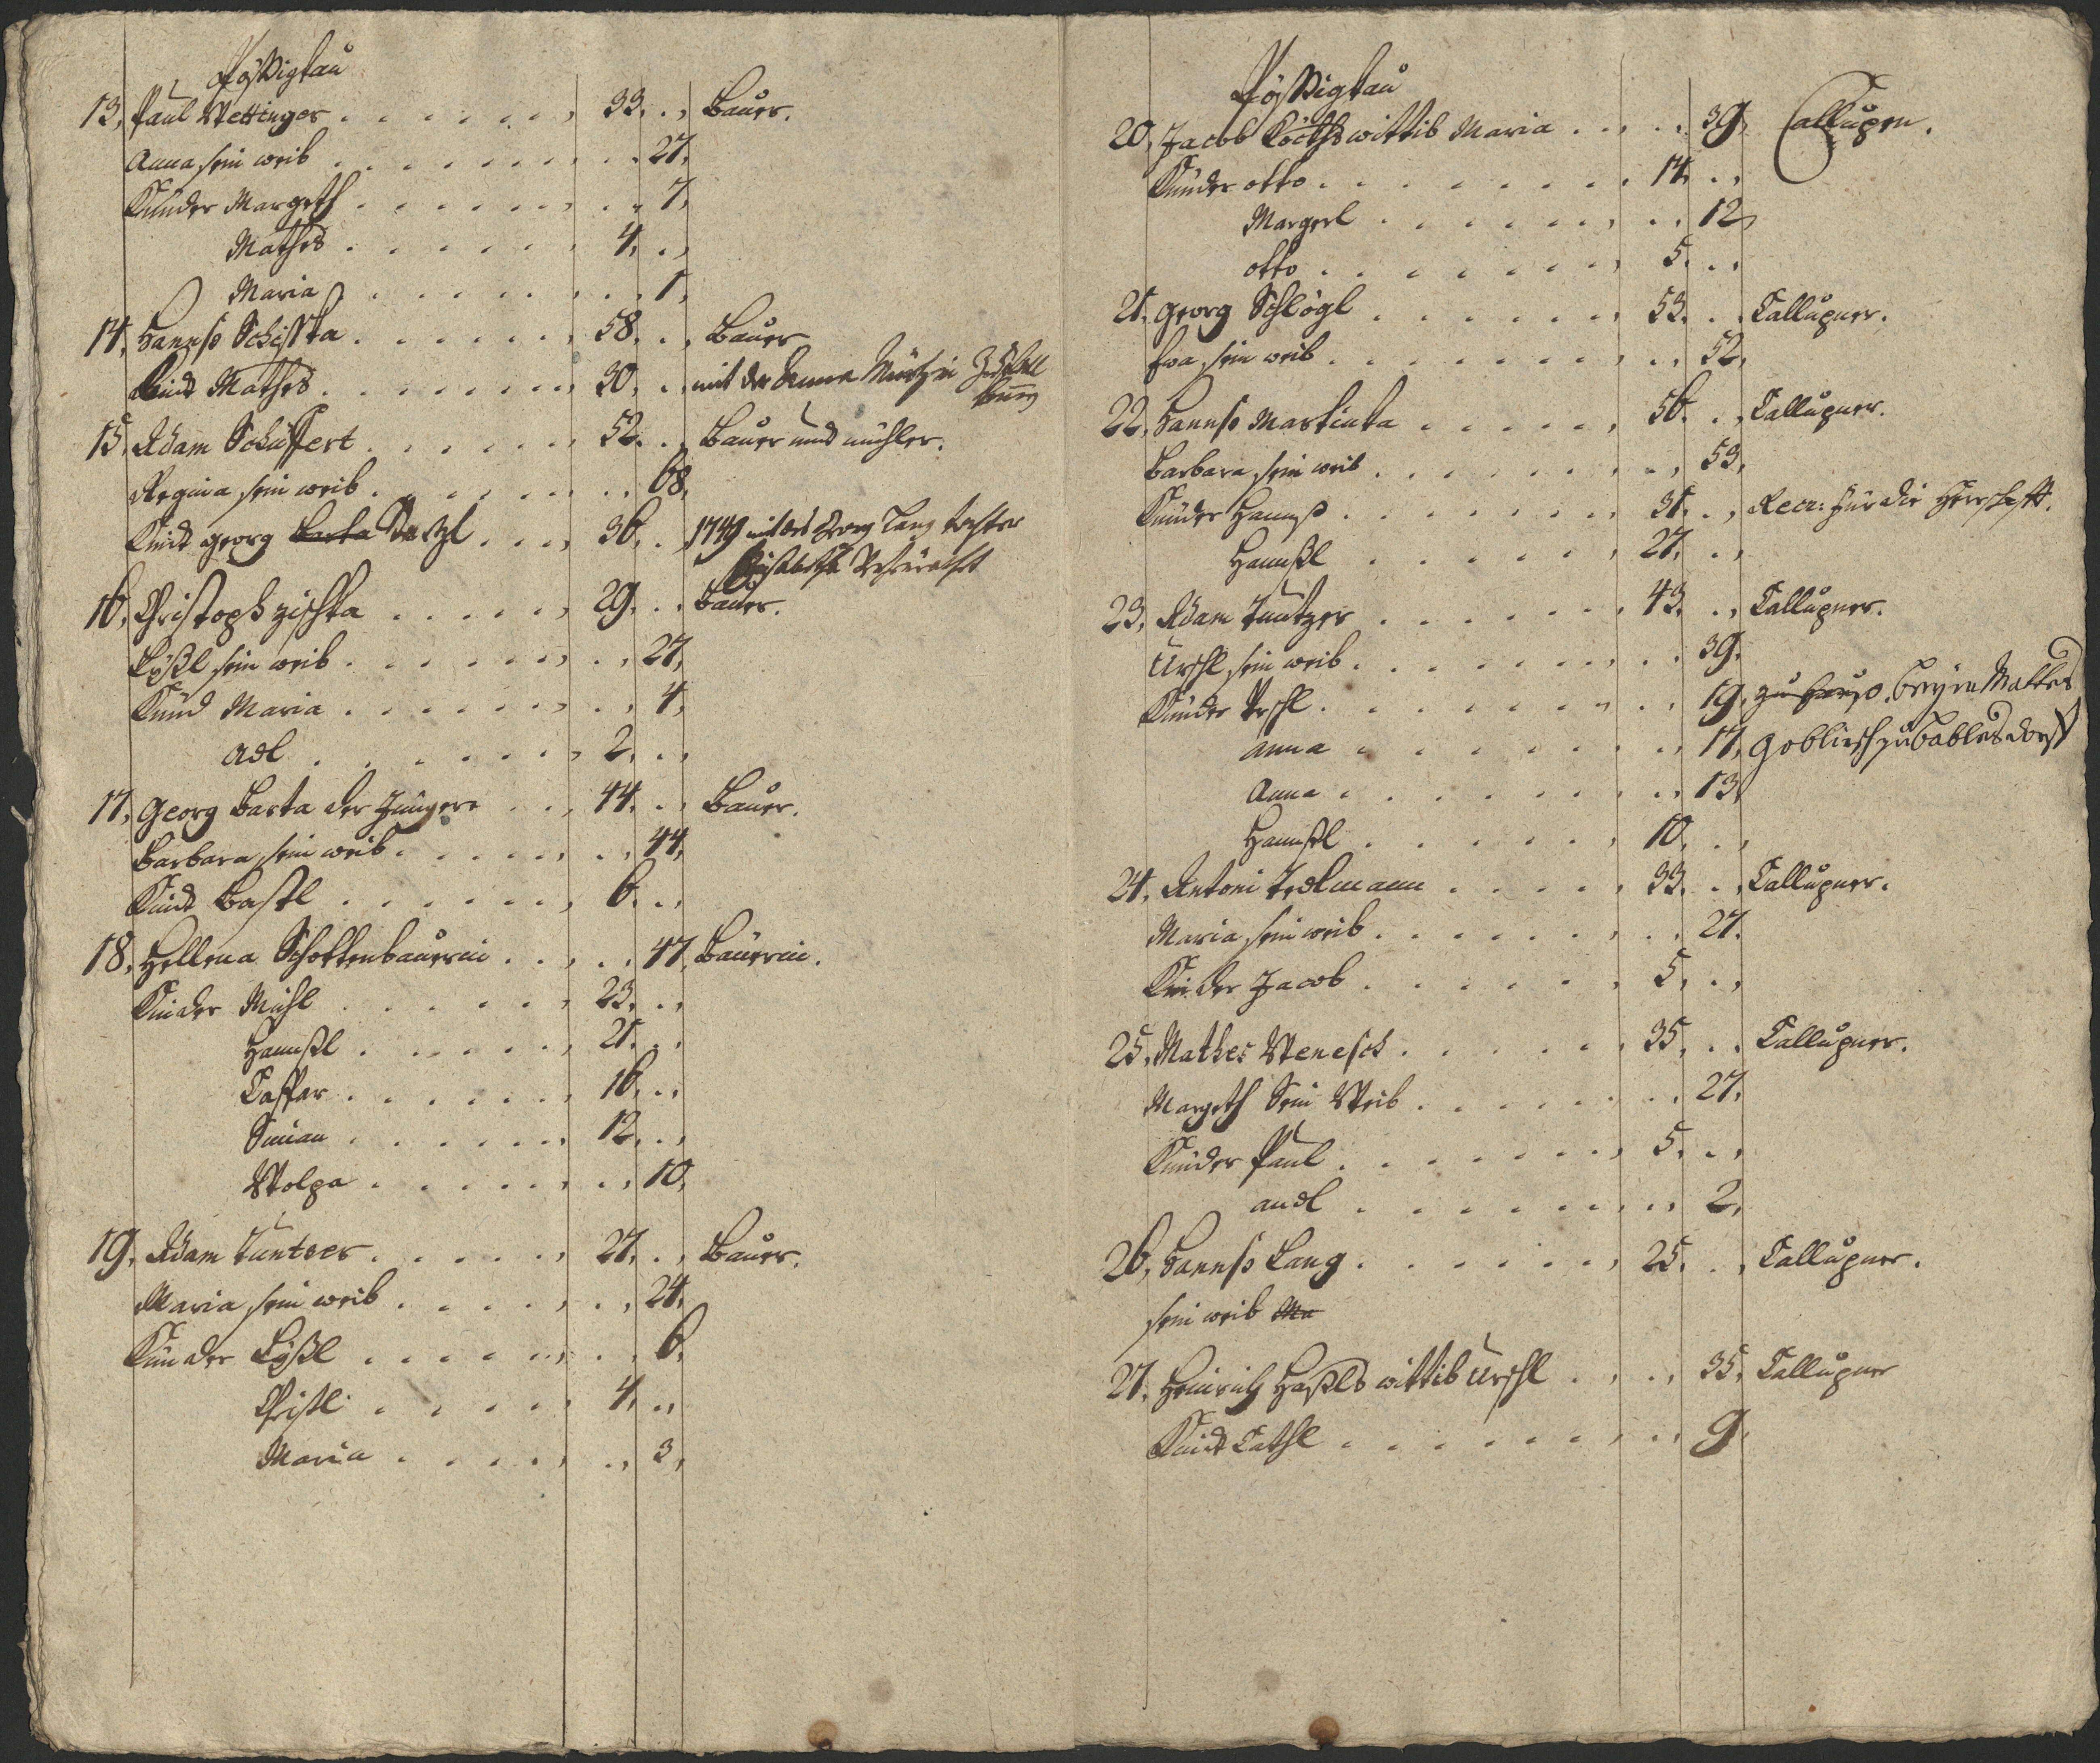 Pössigkau
13, Paul Wettinger . . . . . . 33. . , Bauer.
Anna sein weib . . . . . . . 27,
Kinder Margeth . . . . . . . 7,
Mathes . . . . . . 4, . ,
Maria . . . . . . . 1,
14, Hannß Schiska . . . . . 58. . , Bauer
Kind Mathes . . . . . . 30, . , mit der Anna
15, Adam Schuffert . . . . . 52. . , Bauer und mühler.
Regina sein weib . . . . . . 68,
Kind georg Barta . . . 36, . , 1749 mit des Georg Lang tochter
16, Christoph zischka . . . . . 29. . , Bauer.
Lißl sein weib . . . . . . . 27,
Kind Maria . . . . . . . 4,
Adl . . . . . . 2, . ,
17, Georg Barta der Jüngere . . , 44. . , Bauer.
Barbara sein weib . . . . . . 44,
Kind Bastl . . . . . . 6. . ,
18, Hellena Schottenbauerin . . , . . 47, Bauerin.
Kinder Michl . . . . . . 23, . ,
Hannßl . . . . . . 21. . ,
Casspar . . . . . . 16, . ,
Simon . . . . . . 12. . ,
Wolga . . . . . . . 10,
19, Adam Tuntzer . . . . . 27, . , Bauer.
Maria sein weib . . . . . . 24,
Kinder Lißl . . . . . . . 6,
Christl . . . . . 4, . ,
Maria . . . . . . 3,
Pössigkau
20, Jacob wittib Maria . . , . . 39, Callupen.
Kinder otto . . . . . . . 14, . ,
Margerl . . . . . . . 12,
otto . . . . . . . 5. . ,
21, georg Schlögl . . . . . . 53. . , Callupner.
Eva sein weib . . . . . . . 52,
22, Hannß Martinka . . . . . 56. . , Callupner.
Barbara sein weib . . . . . . . 53,
Kinder Hannß . . . . . . 31. . , Recr: für die Herrschafft.
Hannßl . . . . . . 27. . ,
23, Adam Tuntzer . . . . . . 43. . , Callupner.
Urschl sein weib . . . . . . . 39.
Kinder Urschl . . . . . . . 19, zu Hauß, beym Mathes
anna . . . . . . . 17,
Anna . . . . . . . 13,
Hannßl . . . . . . 10. . ,
24, Antoni . . . . . 33. . , Callupner.
Maria sein weib . . . . . . . 27.
Kinder Jacob . . . . . . 5, . ,
25, Mathes Wenesch . . . . . . 35, . , Callupner.
Margeth Sein Weib . . . . . . . 27.
Kinder Paul . . . . . . 5. . ,
andl . . . . . . . 2,
26, Hannß Lang . . . . . . 25. . , Callupner.
sein weib Ma
27. Heinrich wittib Urschl . . , . , 35, Callupner
Kind Cathl . . . . . . . 9.